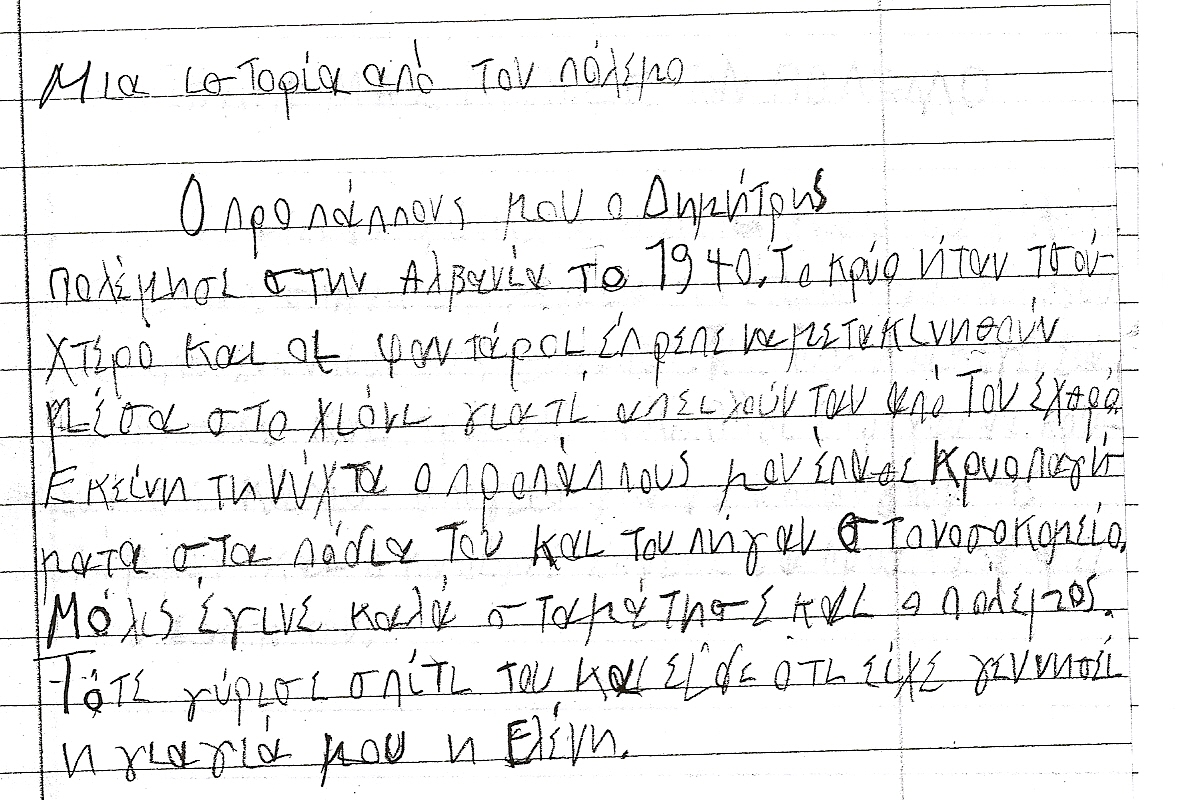 Μια ιστορία από τον πόλεμο
Ο προπάππους μου ο Δημήτρης
πολέμησε στην Αλβανία το 1940. Το κρύο ήταν τσου-
χτερό και οι φαντάροι έπρεπε να μετακινηθούν
μέσα στο χιόνι γιατί απειλούνταν από τον εχθρό.
Εκείνη τη νύχτα ο προπάππους μου έπαθε κρυοπαγή-
ματα στα πόδια του και τον πήγαν στο νοσοκομείο.
Μόλις έγινε καλά σταμάτησε και ο πόλεμος.
Τότε γύρισε σπίτι του και είδε ότι είχε γεννησει
η γιαγιά μου η Ελένη.